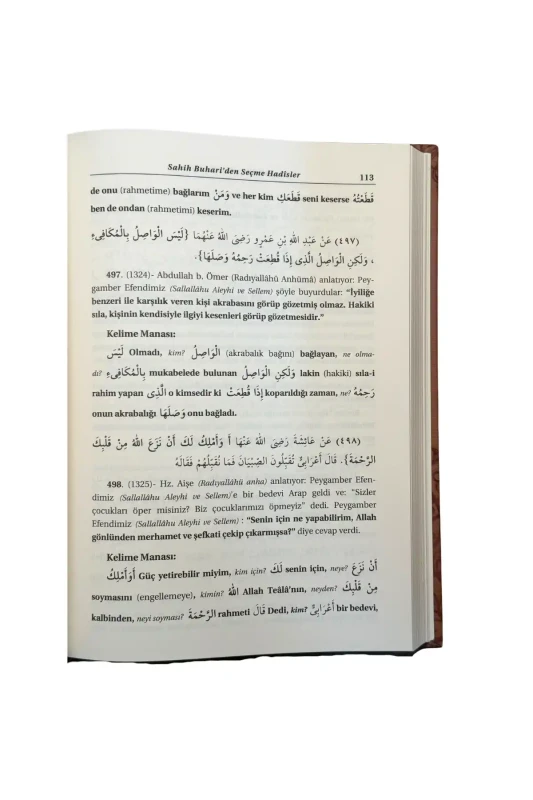 Sahih Buhari'den Seçme Hadisler 113
de onu (rahmetime) bağlarım وَمَنْ ve her kim قَطَعَكِ seni keserse قَطَعْتُهُ
ben de ondan (rahmetimi) keserim.
(٤٩٧) عَنْ عَبْدِ اللهِ بْنِ عَمْرٍو رَضِىَ اللهُ عَنْهُمَا {لَيْسَ الْوَاصِلُ بِالْمُكَافِىءِ
، وَلَكِنِ الْوَاصِلُ الَّذِى إِذَا قُطِعَتْ رَحِمُهُ وَصَلَهَا}.
497. (1324)- Abdullah b. Ömer (Radıyallâhü Anhümâ) anlatıyor: Pey-
gamber Efendimiz (Sallallâhu Aleyhi ve Sellem) şöyle buyurdular: “İyiliğe
benzeri ile karşılık veren kişi akrabasını görüp gözetmiş olmaz. Hakiki
sıla, kişinin kendisiyle ilgiyi kesenleri görüp gözetmesidir.”
Kelime Manası:
لَيْسَ Olmadı, kim? الْوَاصِلُ (akrabalık bağını) bağlayan, ne olma-
dı? بِالْمُكَافِىءِ mukabelede bulunan وَلَكِنِ الْوَاصِلُ lakin (hakiki) sıla-i
rahim yapan الَّذِى o kimsedir ki إِذَا قُطِعَتْ koparıldığı zaman, ne? رَحِمُهُ
onun akrabalığı وَصَلَهَا onu bağladı.
(٤٩٨) عَنْ عَائِشَةَ رَضِىَ اللهُ عَنْهَا أَ وَأَمْلِكُ لَكَ أَنْ نَزَعَ اللهُ مِنْ قَلْبِكَ
الرَّحْمَةَ}. قَالَ أَعْرَابِىٌّ تُقَبِّلُونَ الصِّبْيَانَ فَمَا نُقَبِّلُهُمْ فَقَالَهُ
498. (1325)- Hz. Aişe (Radıyallâhü anha) anlatıyor: Peygamber Efen-
dimiz (Sallallahu Aleyhi ve Sellem)'e bir bedevi Arap geldi ve: “Sizler
çocukları öper misiniz? Biz çocuklarımızı öpmeyiz” dedi. Peygamber
Efendimiz (Sallallahu Aleyhi ve Sellem) : “Senin için ne yapabilirim, Allah
gönlünden merhamet ve şefkati çekip çıkarmışsa?” diye cevap verdi.
Kelime Manası:
أَوَأَمْلِكُ Güç yetirebilir miyim, kim için? لَكَ senin için, neye? أَنْ نَزَعَ
soymasını (engellemeye), kimin? اللهُ Allah Teâlâ'nın, neyden? مِنْ قَلْبِكَ
kalbinden, neyi soyması? الرَّحْمَةَ rahmeti قَالَ Dedi, kim? أَعْرَابِىٌّ bir bedevi,